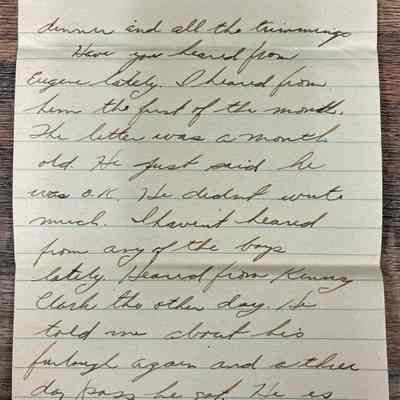 dinner and all the trimmings
Have you heared from
Eugene lately. I heared from
him the first of the month.
The letter was a month
old. He just said he
was O.K. He didnt write
much. I havent heared
from any of the boys
lately. Heared from Kenny
Clark the other day. He
told me about his
furlough again and a three
day pass he got. He is